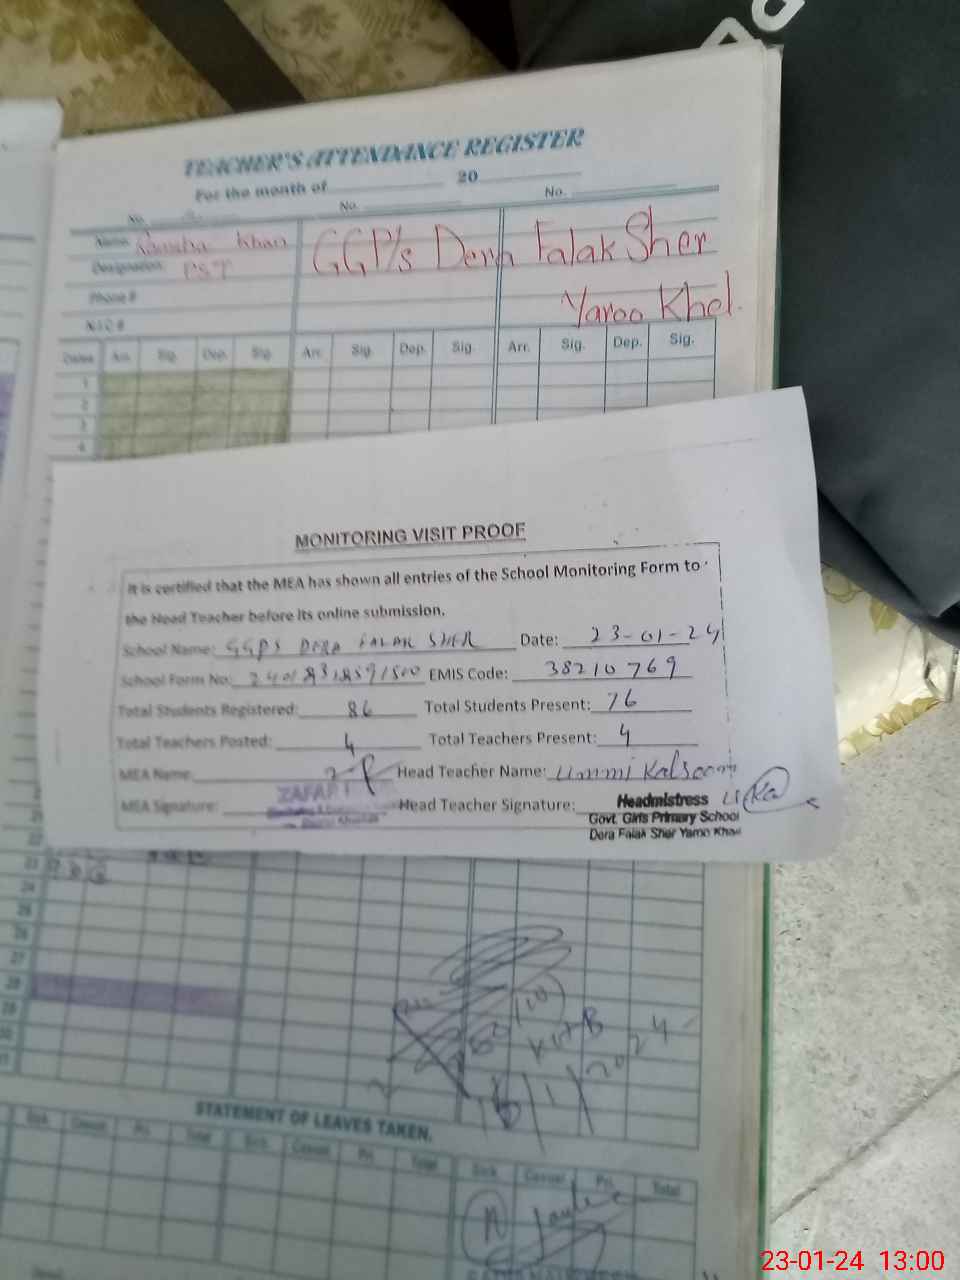 TEACHER'S ATTENDANCE REGISTER
For the month of 20
No. No. No.
Name Khan GGP/s Dera Falak Sher
Designation PST
Yaroo Khel.
Phone #
N.I.C #
Dates Arr. Sig. Dep. Sig. Arr. Sig. Dep. Sig. Arr. Sig. Dep. Sig.
1
2
3
4
MONITORING VISIT PROOF
It is certified that the MEA has shown all entries of the School Monitoring Form to
the Head Teacher before its online submission.
School Name: GGPS DERA FALAK SHER Date: 23-01-24
School Form No: EMIS Code: 38210769
Total Students Registered: 86 Total Students Present: 76
Total Teachers Posted: 4 Total Teachers Present: 4
MEA Name: Head Teacher Name: Ummi Kalsoom
ZAFAR
MEA Signature: Head Teacher Signature: Headmistress
Govt. Girls Primary School
Dera Falak Sher Yaroo Khel
22
23
24
25
26
27
28
29
30
31
2024
STATEMENT OF LEAVES TAKEN.
Sick Casual Pri. Total Sick Casual Pri. Total Sick Casual Pri. Total
23-01-24 13:00